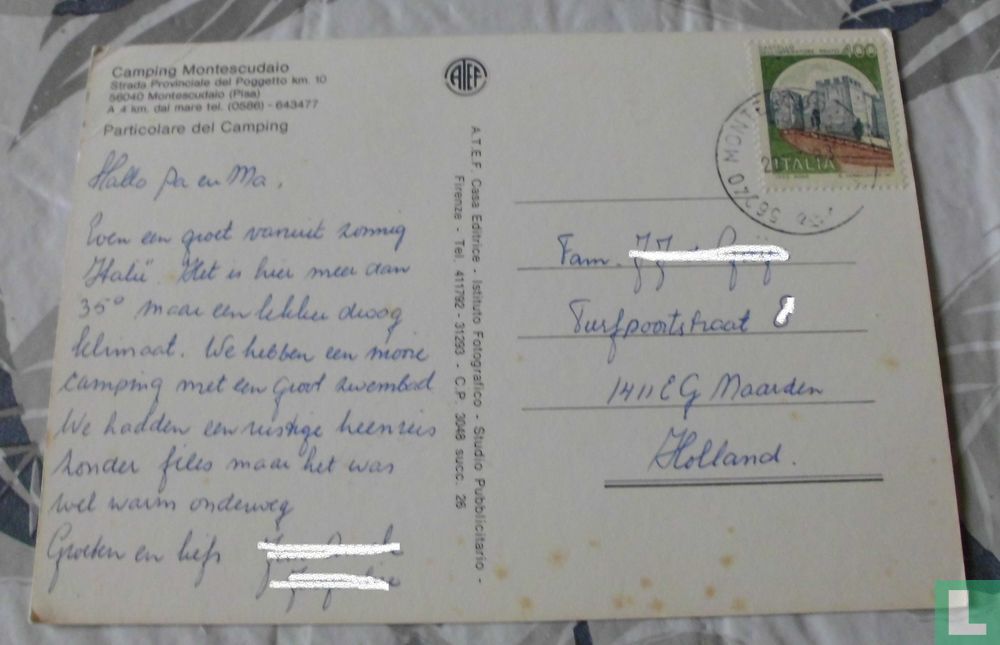 Camping Montescudaio
Strada Provinciale del Poggetto km. 10
56040 Montescudaio (Pisa)
A 4 km. dal mare tel. (0586) - 643477
Particolare del Camping
Hallo Pa en Ma,
Even een groet vanuit zonnig
Italië. Het is hier meer dan
35° maar een lekker droog
klimaat. We hebben een mooie
camping met een groot zwembad
We hadden een rustige heenreis
zonder files maar het was
wel warm onderweg
Groeten en liefs
ATEF
A.T.E.F. Casa Editrice - Istituto Fotografico - Studio Pubblicitario -
Firenze - Tel. 411792 - 31293 - C.P. 3048 succ. 26
400
ITALIA
56040 MONT
Fam.
Turfpoortstraat
1411 EG Naarden
Holland.
L